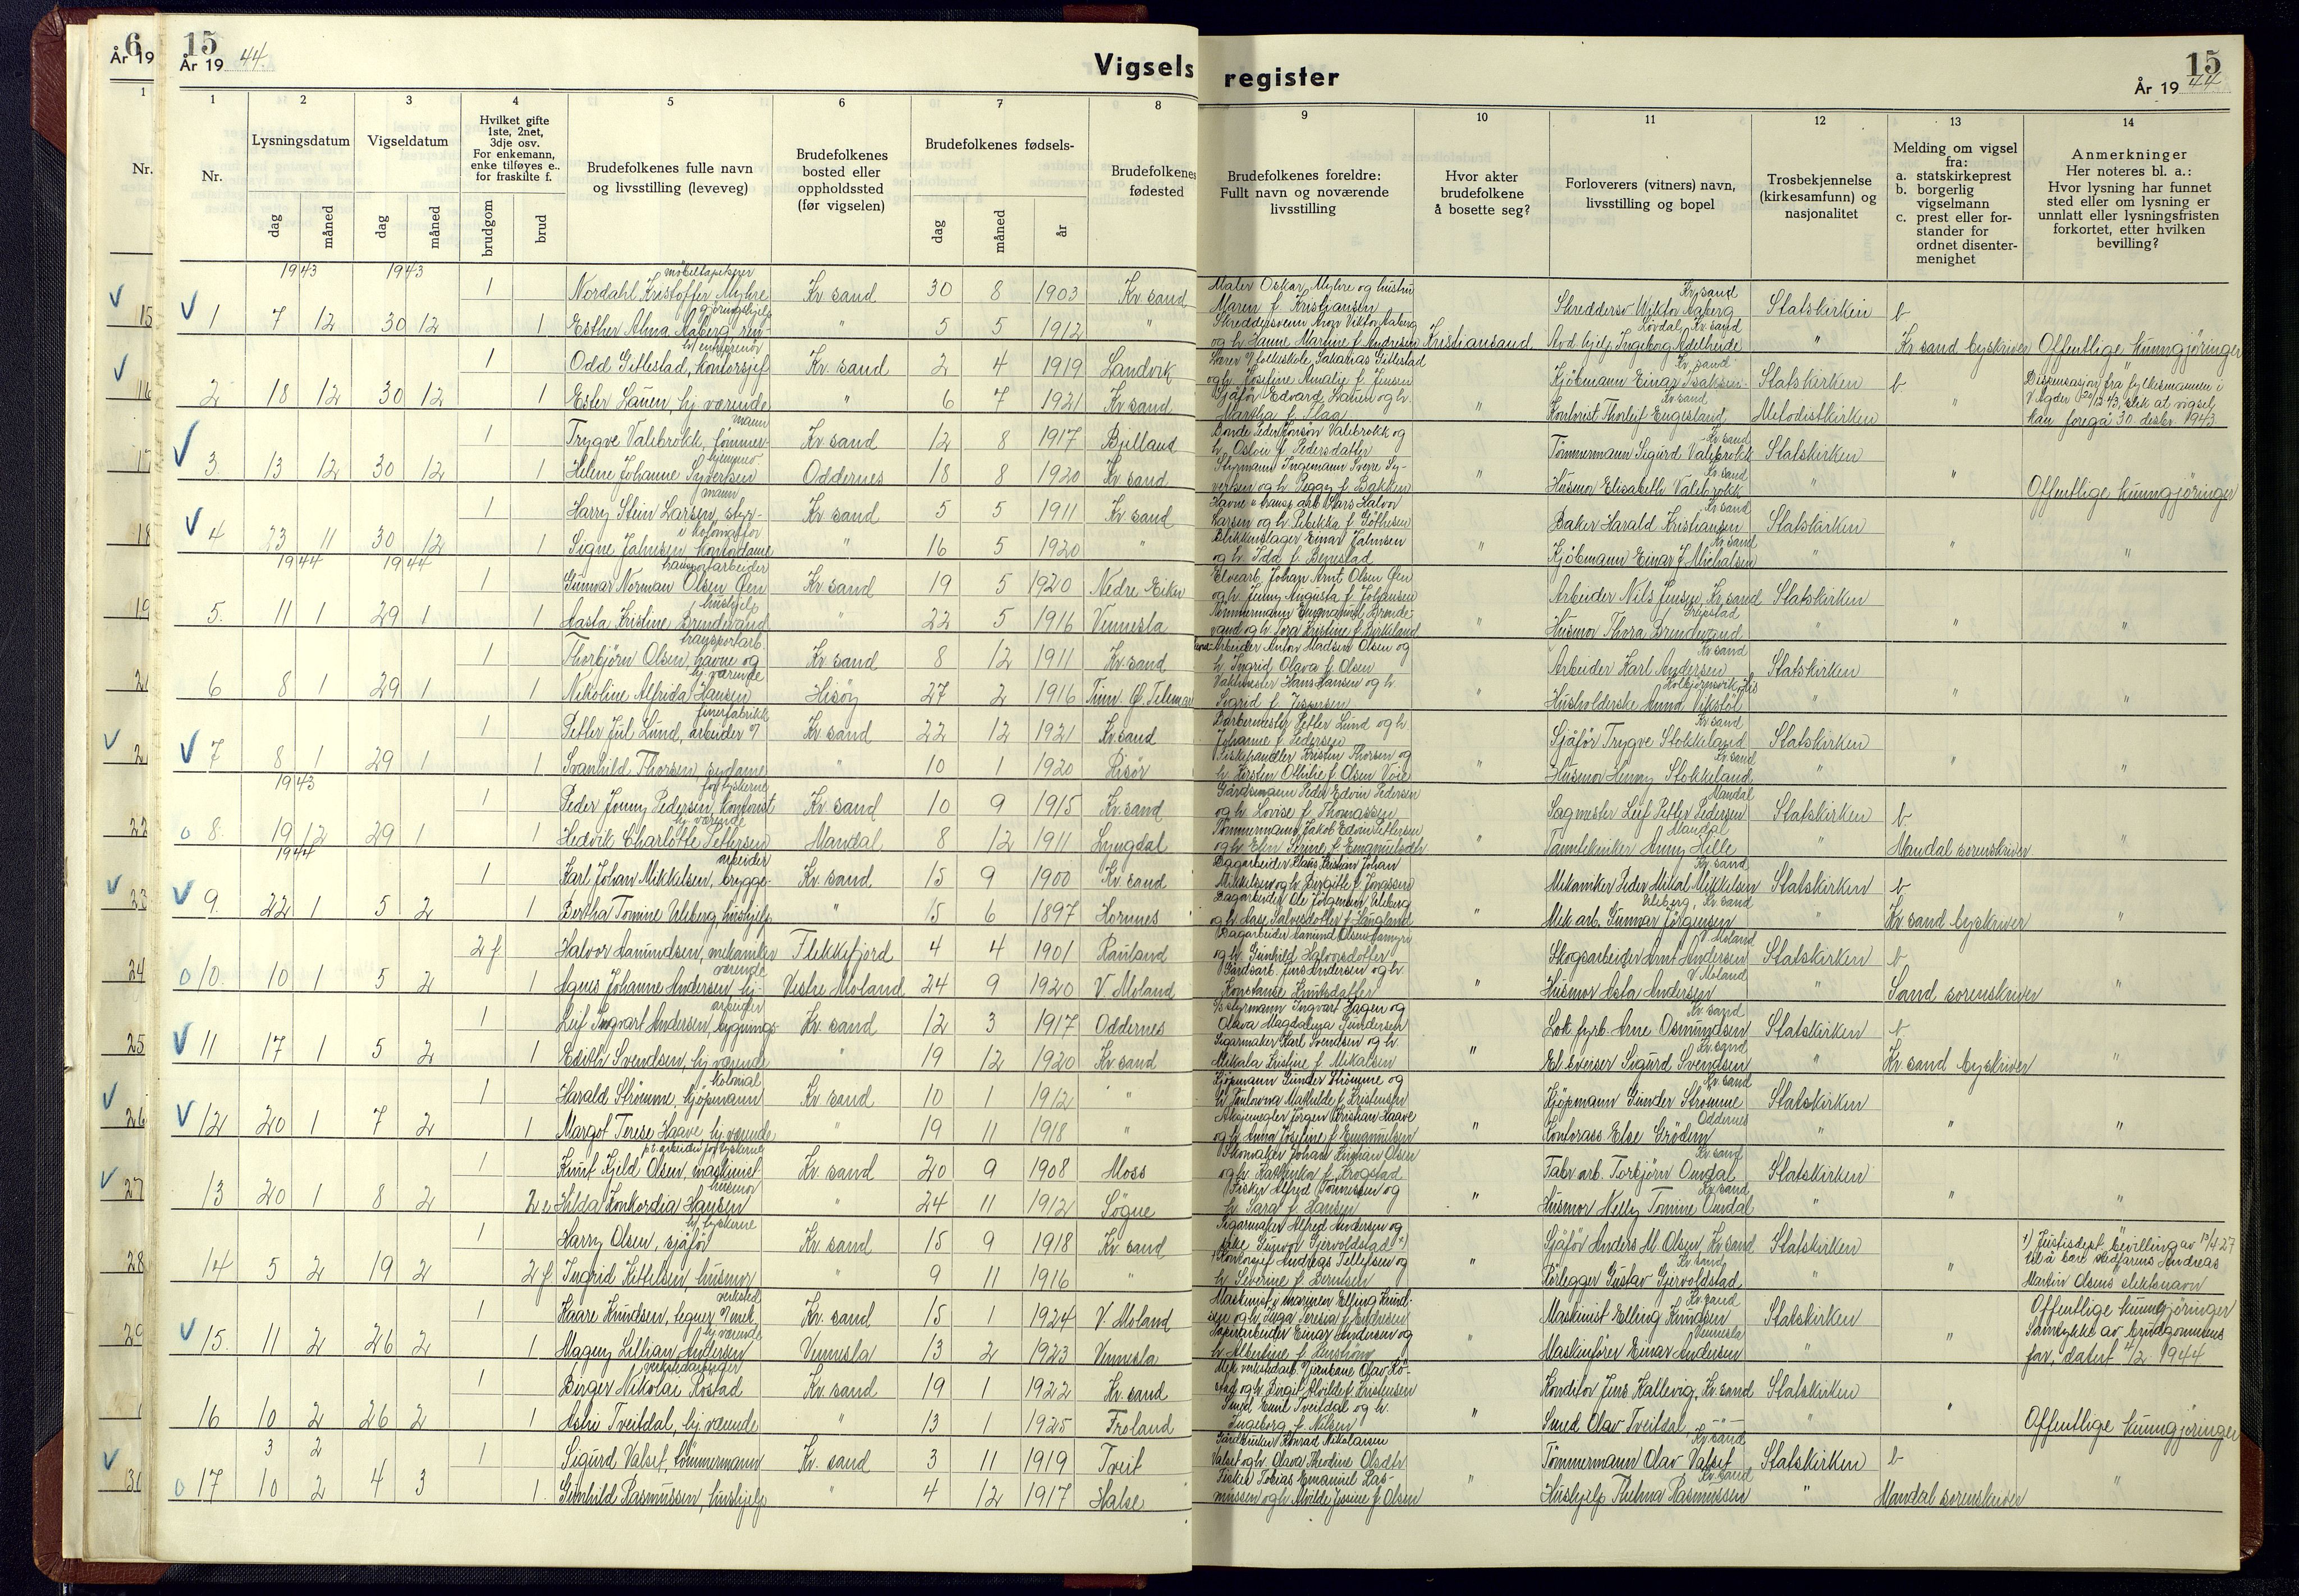 6
År 19
15
År 19 44.
Vigsels register
15
År 19 44
1
Nr.
1 2 3 4 5 6 7 8 9 10 11 12 13 14
Nr.
Lysningsdatum
dag måned
Vigseldatum
dag måned
Hvilket gifte
1ste, 2net,
3dje osv.
For enkemann,
enke tilføyes e..
for fraskilte f.
brudgom brud
Brudefolkenes fulle navn
og livsstilling (leveveg)
Brudefolkenes
bosted eller
oppholdssted
(før vigselen)
Brudefolkenes fødsels-
dag måned år
Brudefolkenes
fødested
Brudefolkenes foreldre:
Fullt navn og noværende
livsstilling
Hvor akter
brudefolkene
å bosette seg?
Forloverers (vitners) navn,
livsstilling og bopel
Trosbekjennelse
(kirkesamfunn) og
nasjonalitet
Melding om vigsel
fra:
a. statskirkeprest
b. borgerlig
vigselmann
c. prest eller for-
stander for
ordnet disenter-
menighet
Anmerkninger
Her noteres bl. a.:
Hvor lysning har funnet
sted eller om lysning er
unnlatt eller lysningsfristen
forkortet, etter hvilken
bevilling?
1943 1943
1 Nordahl Kristoffer Myhre møbeltapetserer Kr sand 30 8 1903 Kr sand Maler Oskar Myhre og hustru Maren f. Kristiansen Skredder Viktor Aaberg Kr. sand Statskirken b
1 7 12 30 12 1 Esther Alma Aaberg ren- gjøringshjelp " 5 5 1912 " Skreddersvenn Aron Viktor Aaberg og h. Hanne Martine f. Andresen Kristiansand. Avd hjelp Ingeborg Adelheide Lövdal, Kr. sand " Kr sand byskriver Offentlige kunngjøringer
1 Odd Gitlestad, kontorsjef Kr. sand 2 4 1919 Landvik Lærer v/ folkeskole Sakarias Gitlestad og h. Josefine Amalie f. Jensen Kjöbmann Einar Isaksen Kr sand Statskirken b
2 18 12 30 12 1 Ester Lauen, hj. værende " 6 7 1921 Kr sand Sjåför Edvard Lauen og h. Martha f. Flaa " Kontorist Thorleif Engesland Kr sand Metodistkirken " Dispensasjon fra fylkesmannen i V. Agder 20/12 43, slik at vigsel kan foregå 30. desbr. 1943
1 Trygve Valebrokk, tömmer- mann Kr sand 12 8 1917 Bjelland Bonde Peder Jonsön Valebrokk og h. Oslou f. Pedersdatter Tömmermann Sigurd Valebrokk Kr. sand Statskirken
3 13 12 30 12 1 Helene Johanne Syvertsen Oddernes 18 8 1920 Kr sand Styrmann Ingemann Sverre Sy- vertsen og h. Peggy f. Bakken " Husmor Elisabeth Valebrokk Kr sand " " Offentlige kunngjøringer
1 Harry Stein Larsen, styr- mann Kr sand 5 5 1911 Kr sand Havne- & transp. arb. Lars Halvor Larsen og h. Rebekka f. Göthesen Baker Harald Kristiansen Kr sand Statskirken
4 23 11 30 12 1 Signe Jahnsen, kontordame " 16 5 1920 " Blikkenslager Einar Jahnsen og h. Ida f. Benestad " Kjöbmann Einar J. Michalsen Kr sand " " "
1944 1944
1 Gunnar Norman Olsen Øen transportarbeider Kr sand 19 5 1920 Nedre Eiker Elvearb. Johan Arnt Olsen Øen og h. Jenny Augusta f. Johansen Arbeider Nils Jensen, Kr. sand Statskirken
5. 11 1 29 1 1 Aasta Kristine Brendevand hushjelp " 22 5 1916 Vennesla Tömmermann Emanuel Brende- vand og h. Tora Kristine f. Birkeland " Husmor Thora Brendevand Grimstad " " "
1 Thorbjörn Olsen, havne og transportarb. Kr sand 8 12 1911 Kr. sand Arbeider Anton Madsen Olsen og h. Ingrid Olava f. Olsen Arbeider Karl Andersen Kr. sand Statskirken
6 8 1 29 1 1 Nikoline Alfrida Hansen hj værende Hisöy 27 2 1916 Tinn. Ø. Telemar Vaktmester Hans Hansen og h. Sigrid f. Jespersen " Husholderske Anna Vikstöl Kolbjörnsvik, His " " "
1 Petter Jul Lund, arbeider v/ finerfabrikk Kr sand 22 12 1921 Kr sand Barbermester Petter Lund og h. Johanne f. Pedersen Sjåför Trygve Stokkeland Kr sand Statskirken
7 8 1 29 1 1 Svanhild Thorsen, sydame " 10 1 1920 Risör Fiskehandler Kristen Thorsen og h. Kirsten Othilie f. Olsen Voie " Husmor Henny Stokkeland Kr. sand " " "
1943
1 Peder Jonny Pedersen, kontorist for tyskerne Kr. sand 10 9 1915 Kr. sand Gårdsmann Peder Edvin Pedersen og h. Lovise f. Thomassen Sagmester Leif Petter Pedersen Mandal Statskirken b.
8. 19 12 29 1 1 Hedvik Charlotte Pettersen hj. værende Mandal 8 12 1911 Lyngdal Tömmermann Jakob Edvin Pettersen og h. Elen Serine f. Emanuelsdtr " Tanntekniker Anny Hille Mandal " Mandal sorenskriver "
1944
1 Karl Johan Mikkelsen, brygge- arbeider Kr. sand 15 9 1900 Kr. sand Dagarbeider Klaus Kristian Johan Mikkelsen og h. Birgitte f. Jonassen Mekaniker Peder Mikal Mikkelsen Kr. sand Statskirken b
9. 22 1 5 2 1 Bertha Tomine Uleberg, hushjelp " 15 6 1897 Hornnes Dagarbeider Ole Jörgensen Uleberg og h. Aase Salvesdotter f. Haugland " Mek arb. Gunnar Jörgensen Uleberg, Kr. sand " Kr sand byskriver "
2 f Halvor Aamundsen, mekaniker Flekkefjord 4 4 1901 Rauland Dagarbeider Aamund Olsen og h. Gunhild Halvorsdotter Skogsarbeider Arnt Andersen V. Moland Statskirken b
10. 10 1 5 2 1 Agnes Johanne Andersen, hj- værende Vestre Moland 24 9 1920 V. Moland Gårdsarb. Jens Andersen og h. Konstanse Knutsdatter " Husmor Asta Andersen V. Moland " Sand sorenskriver "
1 Leif Ingvart Andersen, bygnings- arbeider Kr. sand 12 3 1917 Oddernes styrmann Ingvart Hagen og Olava Magdalena Gundersen Lok fyrb. Arne Osmundsen Kr. sand Statskirken b
11 17 1 5 2 1 Edith Svendsen, hj værende " 19 12 1920 Kr. sand Sigarmaker Karl Svendsen og h. Mikala Kristine f. Mikalsen " El. sveiser Sigurd Svendsen Kr. sand " Kr sand byskriver "
1 Harald Strömme, kjöpmann kolonial Kr sand 10 1 1912 " Kjöpmann Gunder Strömme og h. Paulovna Mathilde f. Kristensen Kjöpmann Gunder Strömme Kr. sand Statskirken
12 20 1 7 2 1 Margot Terese Haave hj. værende " 19 11 1918 " Aksjemegler Jörgen Kristian Haave og h. Anna Josefine f. Emanuelsen " Kontorass Else Grödem Oddernes " " "
1 Knut Kjeld Olsen, maskinist p.t. arbeider for tyskerne Kr. sand 20 9 1908 Moss Skomaker Johan Kristian Olsen og h. Kathinka f. Krogstad Fabr arb. Torbjörn Omdal Kr sand Statskirken
13 20 1 8 2 2 e Hilda Konkordia Hansen husmor " 24 11 1912 Sögne Fisker Alfred Tönnessen og h. Sara f. Hansen " Husmor Nelly Tomine Omdal Kr. sand " " "
1 Harry Olsen, sjåför h/ tyskerne Kr. sand 15 9 1918 Kr sand Sigarmaker Alfred Andersen og Gunvor Gjervoldstad 1) Sjåför Anders M. Olsen, Kr sand Statskirken
14 5 2 19 2 2 f Ingrid Kittelsen, husmor " 9 11 1916 " Kontorsjef Andreas Tellefsen og h. Severine f. Berntsen " Rörlegger Gustav Gjervoldstad Kr. sand " " 1) Justisdept. bevilling av 13/4 27 til å bære stedfarens Andreas Martin Olsens slektsnavn
1 Kaare Knudsen, tegner v/ mek. verksted Kr. sand 15 1 1924 V. Moland Maskinist i marinen Elling Knud- sen og h. Inga Teresia f. Andersen Maskinist Elling Knudsen Kr. sand Statskirken Offentlige kunngjøringer
15. 11 2 26 2 1 Magny Lillian Andersen hj værende Vennesla 13 2 1923 Vennesla Papirarbeider Einar Andersen og h. Albertine f. " Maskinfører Einar Andersen Vennesla " " Samtykke av brudgommens far, datert 4/2 1944
1 Birger Nikolai Röstad verkstedarbeider Kr. sand 19 1 1922 Kr. sand Mek. verkstedarb. v/ jernbane Olav Rö- stad og h. Birgit Alvilde f. Kristensen Konditor Jens Kallevig, Kr. sand Statskirken
16 10 2 26 2 1 Astri Tveitdal, hj værende " 13 1 1925 Froland Smed Emil Tveitdal og h. Ingeborg f. Nilsen " Smed Olav Tveitdal " " Offentlige kunngjøringer
3 2 1 Sigurd Valset, tömmermann Kr. sand 3 11 1919 Tveit Gårdbruker Konrad Nikolaisen Valset og h. Olava Theodine Olsdtr Tömmermann Olav Valset Kr. sand Statskirken b
17 10 2 4 3 1. Gunhild Rasmussen, hushjelp " 4 12 1917 Halse Fisker Tobias Emanuel Ras- mussen og h. Alvilde Jessine f. Olsen " Hushjelp Thelma Rasmussen Kr sand " Mandal sorenskriver "